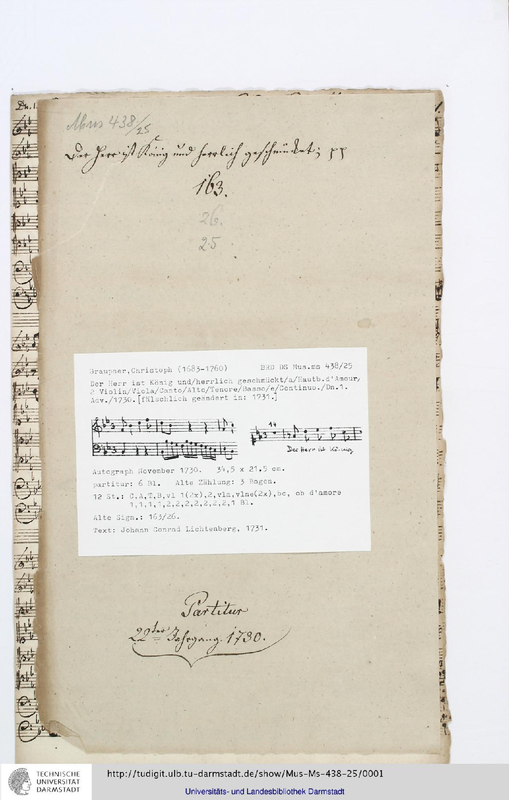 Mus 438/25
Der Herr ist König und herrlich geschmücket; pp
163.
26.
25
Graupner,Christoph (1683-1760) BRD DS Mus.ms 438/25
Der Herr ist König und/herrlich geschmückt/a/Hautb.d'Amour/
2 Violin/Viola/Canto/Alto/Tenore/Basso/e/Continuo./Dn.1.
Adv./1730.[fälschlich geändert in: 1731.]
14
Der Herr ist König
Autograph November 1730. 34,5 x 21,5 cm.
partitur: 6 Bl. Alte Zählung: 3 Bogen.
12 St.: C,A,T,B,vl 1(2x),2,vla,vlne(2x),bc, ob d'amore
1,1,1,1,2,2,2,2,2,2,2,1 Bl.
Alte Sign.: 163/26.
Text: Johann Conrad Lichtenberg, 1731.
Partitur
22ter Jahrgang. 1730.
TECHNISCHE
UNIVERSITÄT
DARMSTADT
http://tudigit.ulb.tu-darmstadt.de/show/Mus-Ms-438-25/0001
Universitäts- und Landesbibliothek Darmstadt